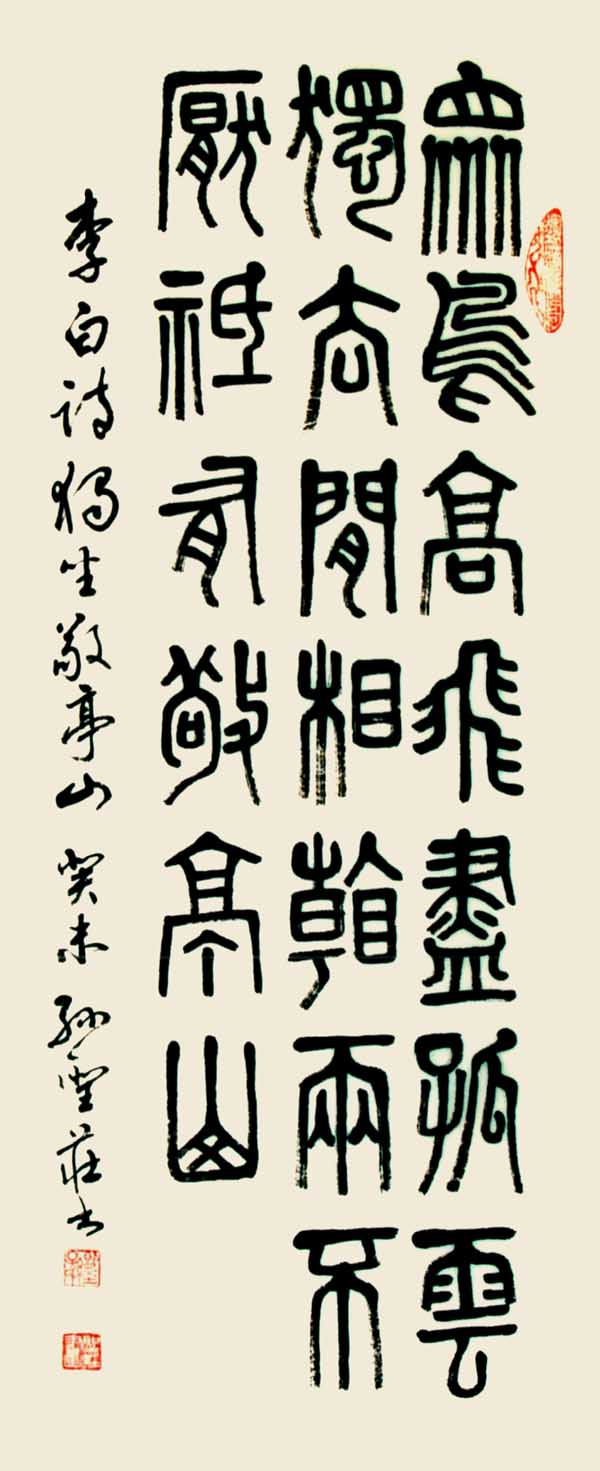 眾鳥高飛盡孤雲
獨去閒相看兩不
厭祗有敬亭山
李白詩獨坐敬亭山 癸未 孫雪莊書